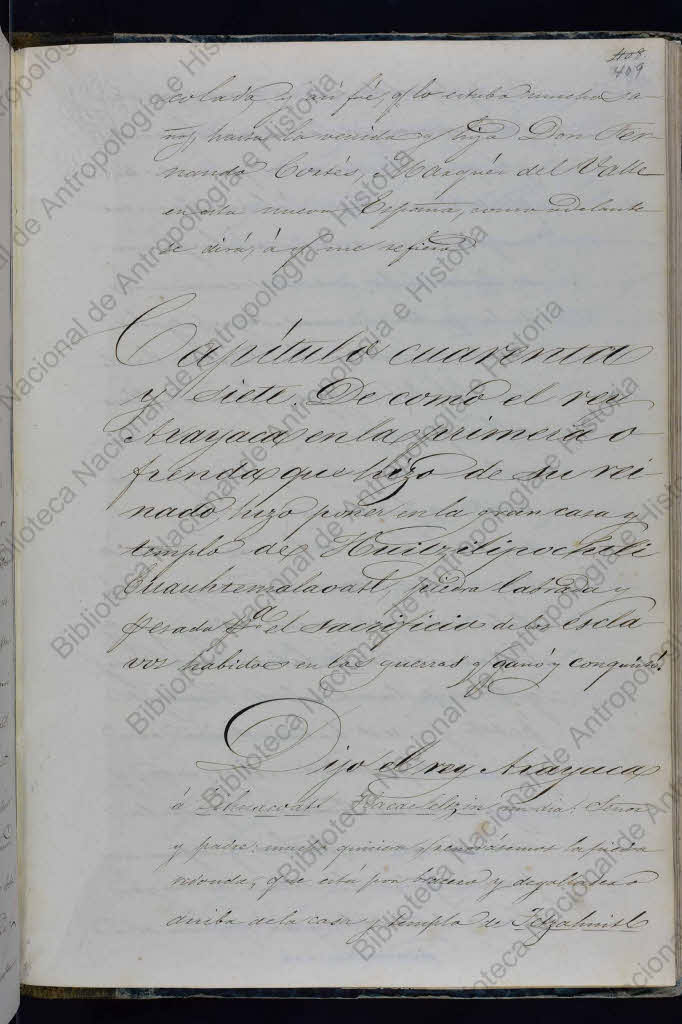 408
409
colada, y así fué, q lo estuvo mucho a-
ños, hasta la venida q hizo Don Fer-
nando Cortés, Marqués del Valle
en esta nueva España, como adelante
se dirá, á q me refiero.
Capítulo cuarenta
y siete. De como el rey
Axayaca en la primera o
frenda que hizo de su rei
nado, hizo poner en la gran casa y
templo de Huitzilipochtli
Cuauhtemalacatl, piedra labrada y
pesada pª el sacrificio de los escla
vos habidos en las guerras q ganó y conquistó.
Dijo el rey Axayaca
á Zihuacoatl Tlacaeleltzin un dia: Señor
y padre: mucho quisiera q renovásemos la piedra
redonda, que está por bracero y degolladero a
rriba de la casa y templo de Tetzahuitl
Biblioteca Nacional de Antropología e Historia